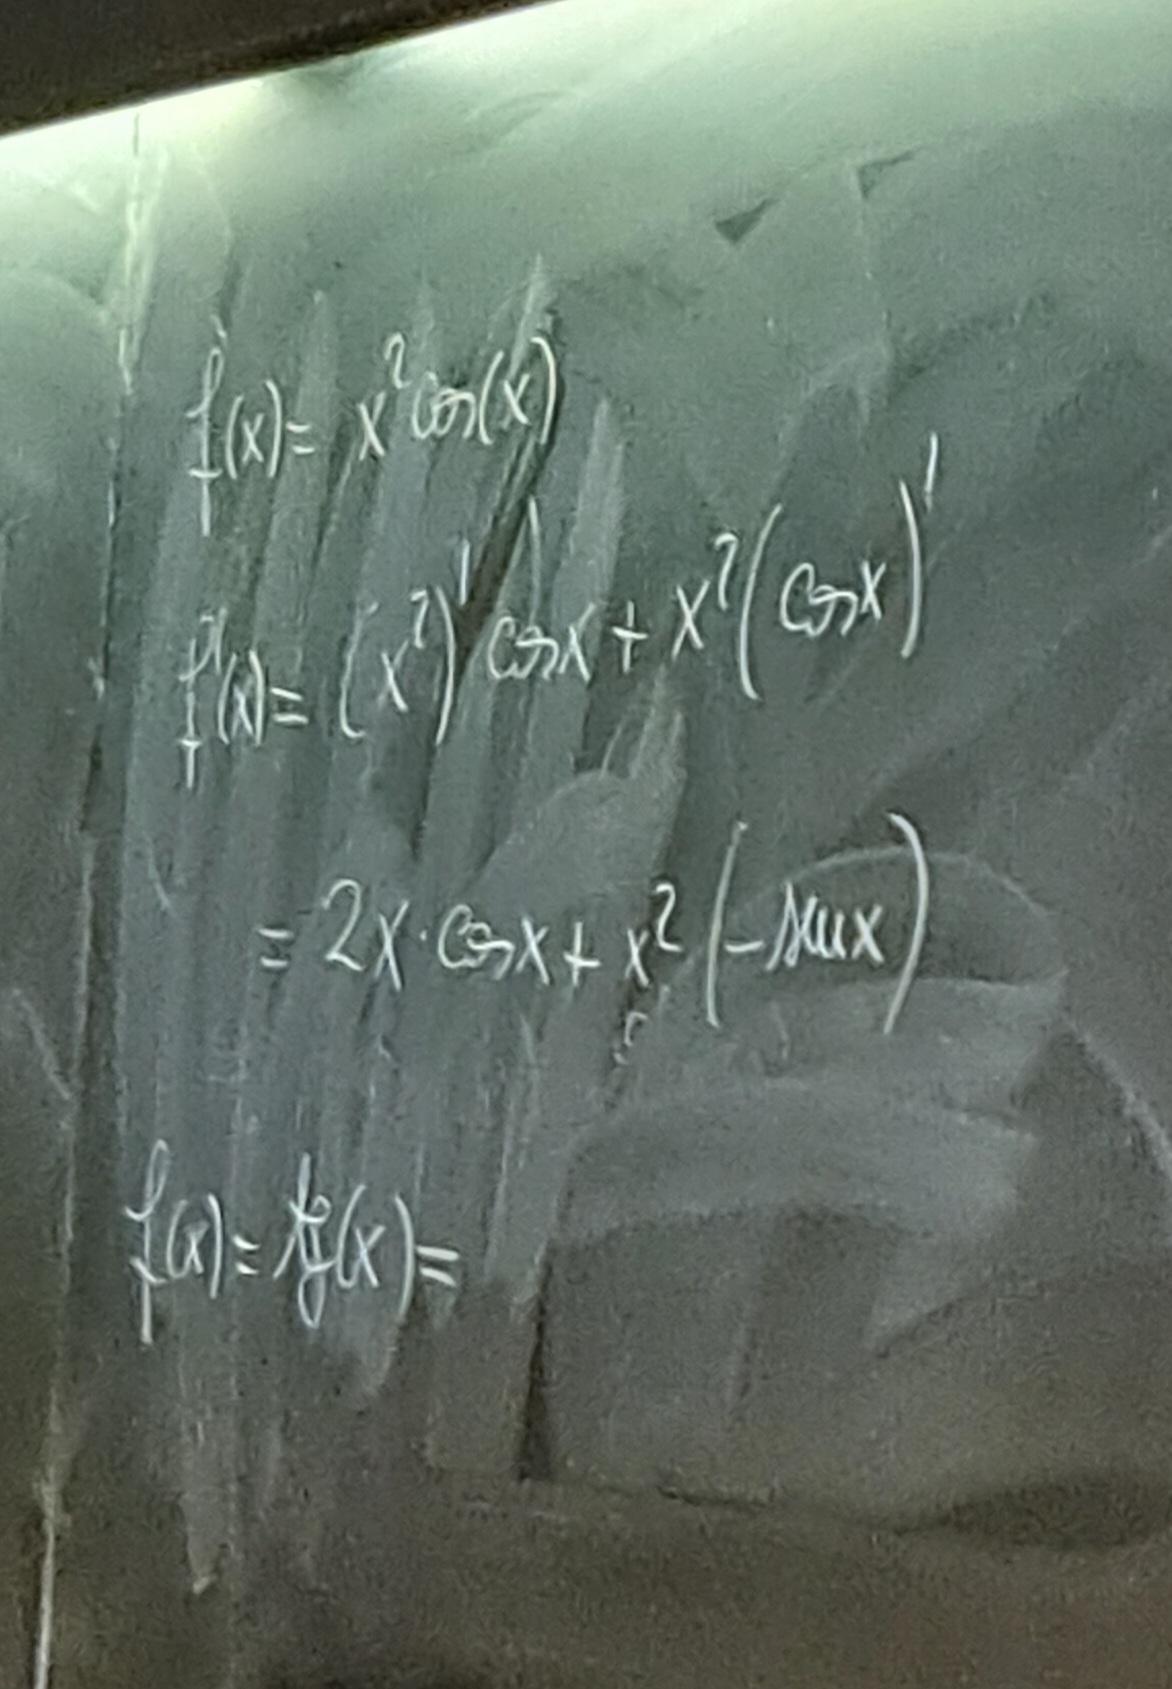 f(x) = x² cos(x)
f'(x) = (x²)' cosx + x² (cosx)'
= 2x · cosx + x² (-sinx)
f(x) = tg(x) =